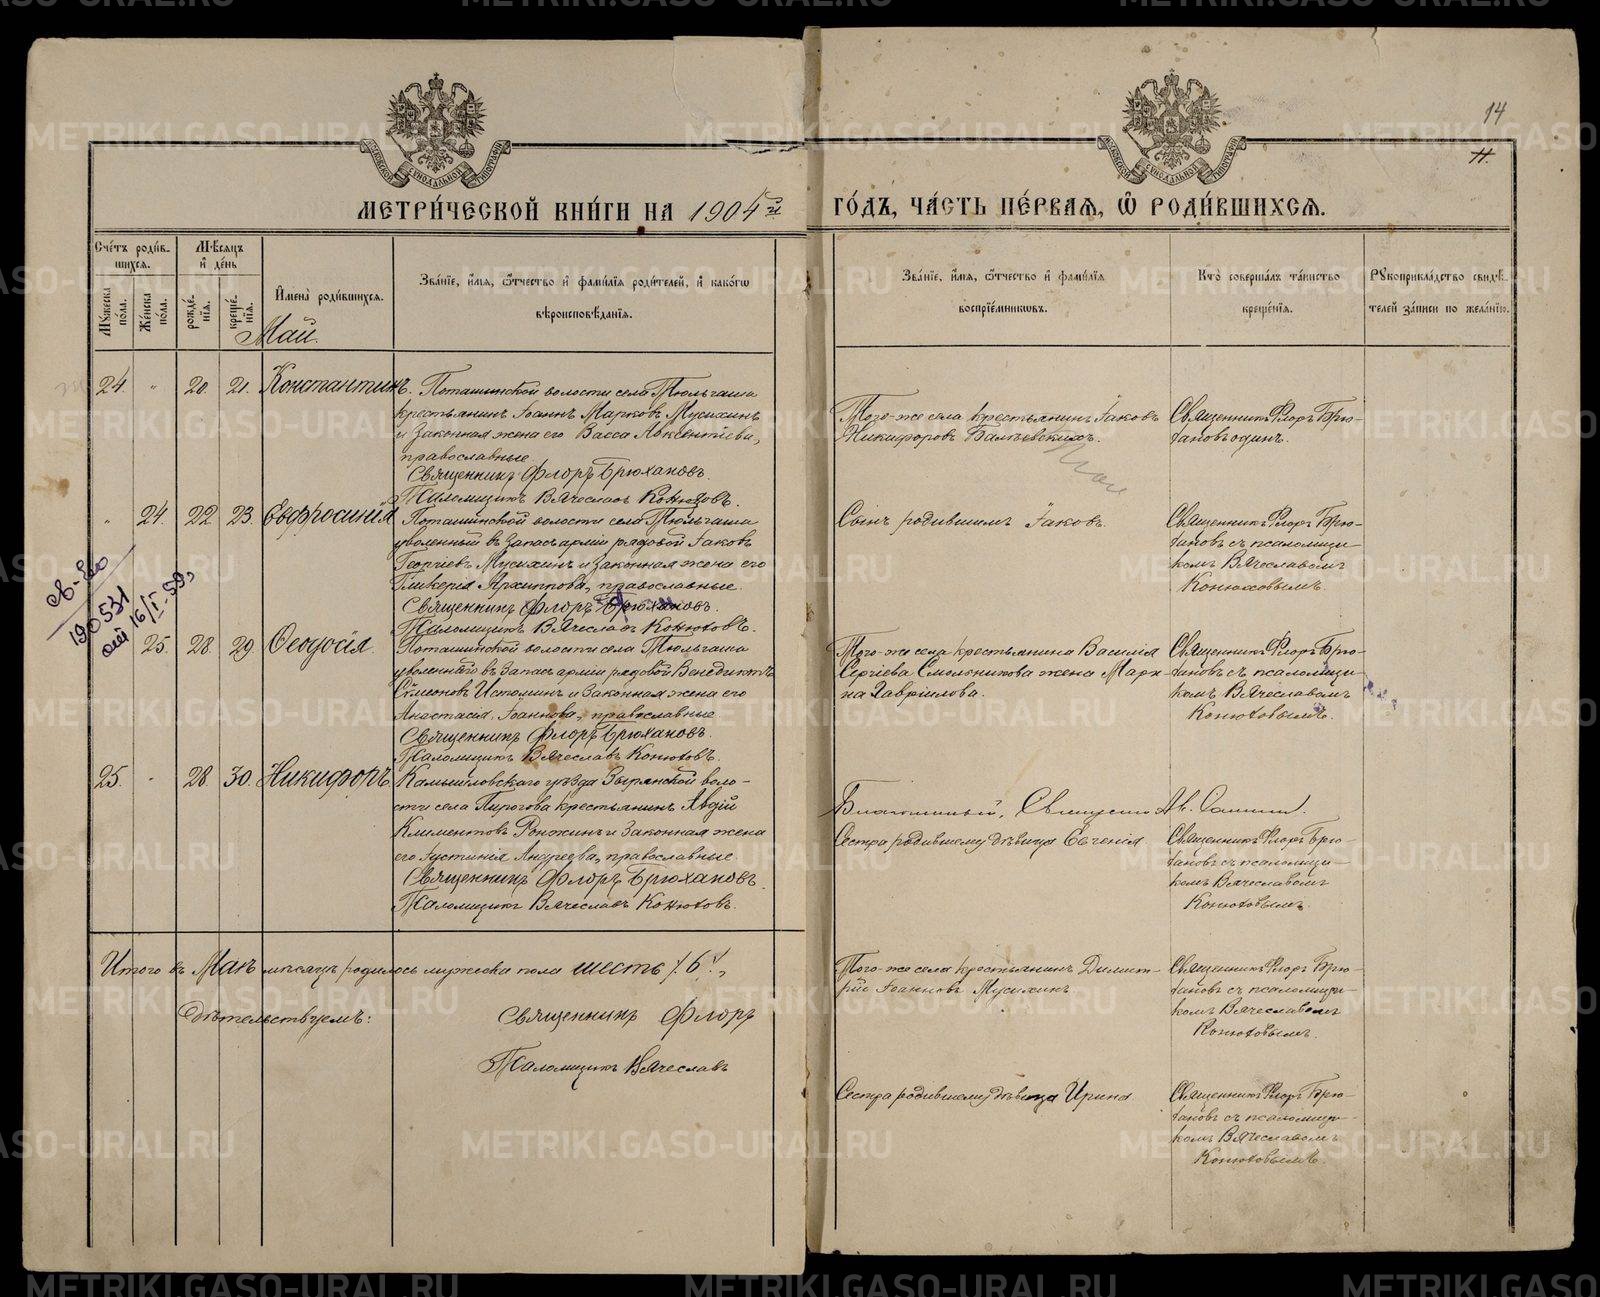 14
11.
МЕТРИ́ЧЕСКОЙ КНИ́ГИ НА 1904й ГО́ДЪ, ЧА́СТЬ ПЕ́РВАЯ, Ѡ РОДИ́ВШИХСЯ.
Сче́тъ роди́в-
шихся.
Му́жеска по́ла.
Же́нска по́ла.
Мѣ́сяцъ и де́нь
рожде́нія.
креще́нія.
Имена̀ роди́вшихся.
Зва́ніе, и́мя, о́тчество и фами́лія роди́телей, и како́гѡ
вѣроисповѣ́данія.
Зва́ніе, и́мя, о́тчество и фами́лія
воспріе́мниковъ.
Кто̀ соверша́лъ та́инство
креще́нія.
Рукоприкла́дство свидѣ́-
телей за́писи по жела́нію.
Май.
24 " 20. 21. Константинъ.
Поташинской волости села Тюльгаша
крестьянинъ Іоаннъ Марковъ Мусихинъ
и законная жена его Васса Авксентіева,
православные.
Священникъ Флоръ Брюхановъ.
Псаломщикъ Вячеславъ Конюховъ.
Того-же села крестьянинъ Іаковъ
Никифоровъ
Священникъ Флоръ Брю-
хановъ одинъ.
" 24. 22. 23. Евфросинія
Поташинской волости села Тюльгаша
уволенный въ запасъ арміи рядовой Іаковъ
Георгіевъ Мусихинъ и законная жена его
Гликерія Архиппова, православные.
Священникъ Флоръ Брюхановъ.
Псаломщикъ Вячеславъ Конюховъ.
Сынъ родившихъ Іаковъ.
Священникъ Флоръ Брю-
хановъ съ псаломщи-
комъ Вячеславомъ
Конюховымъ.
св-во
190531
от 16/I-59,
25. 28 29 Ѳеодосія.
Поташинской волости села Тюльгаша
уволенный въ запасъ арміи рядовой Венедиктъ
Симеоновъ Истоминъ и законная жена его
Анастасія Іоаннова, православные.
Священникъ Флоръ Брюхановъ.
Псаломщикъ Вячеславъ Конюховъ.
Того-же села крестьянина Василія
Сергіева Смольникова жена Мари-
на Гавріилова.
Священникъ Флоръ Брю-
хановъ съ псаломщи-
комъ Вячеславомъ
Конюховымъ.
25. " 28. 30. Никифоръ.
Камышловскаго уѣзда Зырянской воло-
сти села Пирогова крестьянинъ Авдій
Климентовъ Ронжинъ и законная жена
его Іустинія Андреева, православные.
Священникъ Флоръ Брюхановъ.
Псаломщикъ Вячеславъ Конюховъ.
Благочинный, Священникъ Ав.
Сестра родившему дѣвица Евгенія
Священникъ Флоръ Брю-
хановъ съ псаломщи-
комъ Вячеславомъ
Конюховымъ.
Итого въ Маѣ мѣсяцѣ родилось мужеска пола шесть /6/,
Свѣтельствуемъ: Священникъ Флоръ
Псаломщикъ Вячеславъ
Того-же села крестьянинъ Димит-
рій Іоанновъ Мусихинъ.
Священникъ Флоръ Брю-
хановъ съ псаломщи-
комъ Вячеславомъ
Конюховымъ.
Сестра родившему дѣвица Ирина.
Священникъ Флоръ Брю-
хановъ съ псаломщи-
комъ Вячеславомъ
Конюховымъ.
METRIKI.GASO-URAL.RU